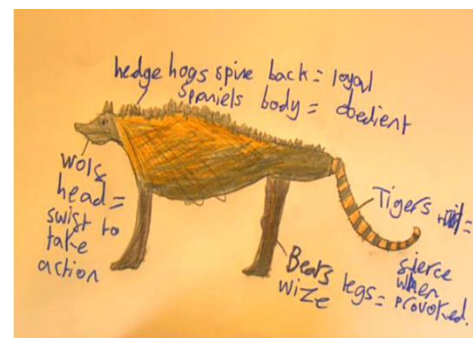 hedge hogs spine back = loyal
Spaniels body = obedient
wols
head =
swist to
take
action
Tigers =
sierce
when
provoked.
Bears legs =
wize